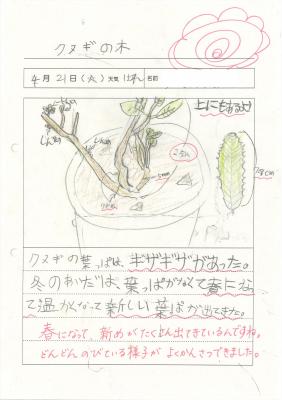 クヌギの木
4月21日(火) 天気 はれ 名前
しんめ
しんめ
しんめ
上にもあるよ!
2.5cm
7.8cm
クヌギの葉っぱは、ギザギザがあった。
冬のあいだは、葉っぱがなくて春になっ
て温かくなって新しい葉っぱが出てきた。
春になって、新めがたくさん出てきているんですね。
どんどんのびている様子がよくかんさつできました。